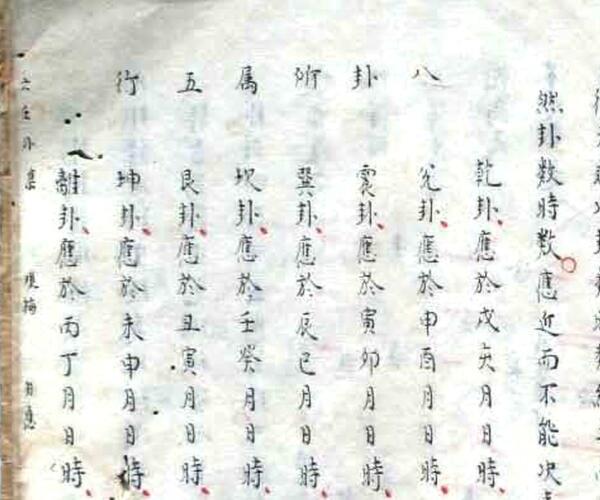 然卦数時数應近而不能决
乾卦應於戌亥月日時
八
兌卦應於申酉月日時
卦
震卦應於寅卯月日時
所
巽卦應於辰巳月日時
属
坎卦應於壬癸月日時
五
艮卦應於丑寅月日時
行
坤卦應於未申月日時
離卦應於丙丁月日時